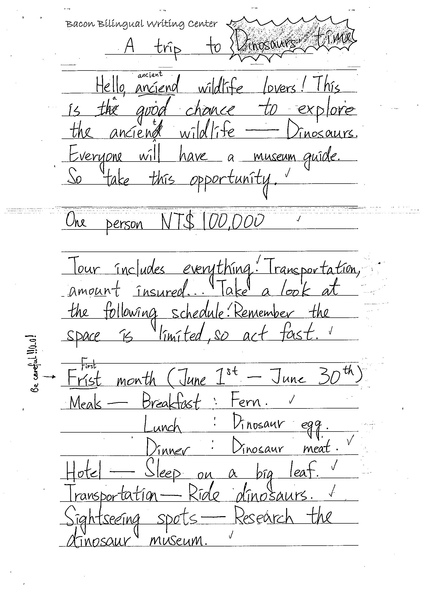 Bacon Bilingual Writing Center
A trip to Dinosaurs time
ancient
Hello, anciend wildlife lovers! This
is the good chance to explore
a
the ancient wildlife — Dinosaurs.
Everyone will have a museum guide.
So take this opportunity.
One person NT$ 100,000
Tour includes everything! Transportation,
amount insured... Take a look at
the following schedule! Remember the
space is limited, so act fast.
First
Be careful!!!
→ Frist month (June 1st — June 30th)
Meals — Breakfast : Fern.
Lunch : Dinosaur egg.
Dinner : Dinosaur meat.
Hotel — Sleep on a big leaf.
Transportation — Ride dinosaurs.
Sightseeing spots — Research the
dinosaur museum.